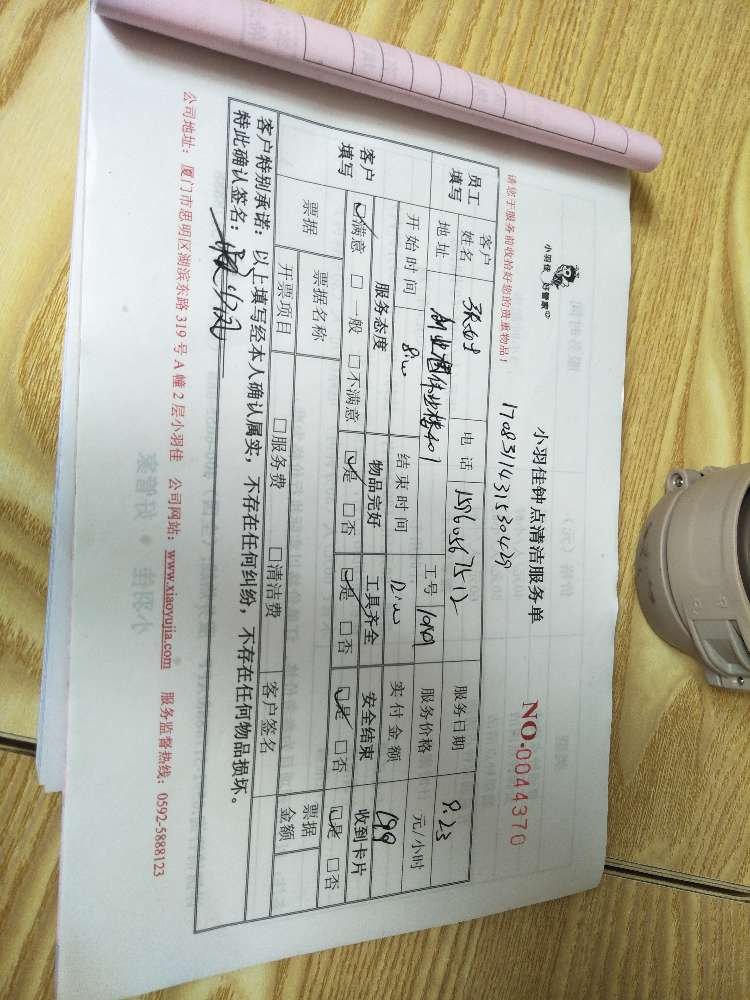 小羽佳 好管家
小羽佳钟点清洁服务单
NO.0044370
请您于服务前收拾好您的贵重物品！
1708311431530429
员工填写
客户姓名
电话
服务日期 9.23
地址
401
工号
服务价格 元/小时
开始时间 8:00
结束时间 12:00
实付金额 199
客户填写
服务态度 物品完好 工具齐全 安全结束 收到卡片
☑满意 □一般 □不满意 ☑是 □否 ☑是 □否 ☑是 □否 ☑是 □否
票据
票据名称
客户签名
票据金额
开票项目 □服务费 □清洁费
客户特别承诺：以上填写经本人确认属实，不存在任何纠纷，不存在任何物品损坏。
特此确认签名：
公司地址：厦门市思明区湖滨东路319号A幢2层小羽佳 公司网站：www.xiaoyujia.com 服务监督热线：0592-5888123